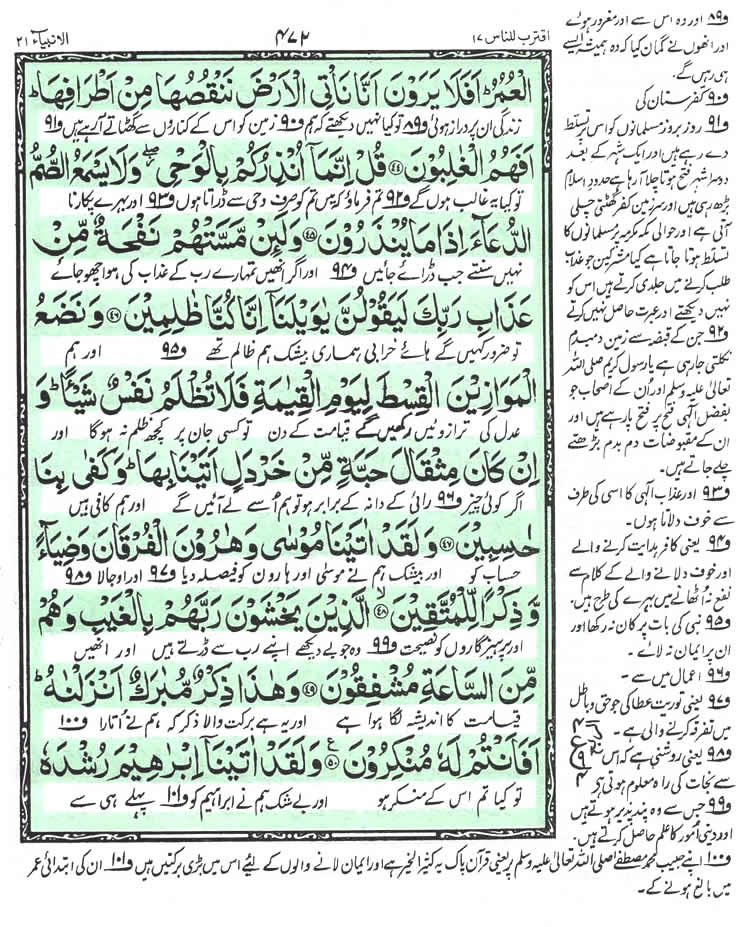 اقترب للناس ۱۷
۴۷۲
الانبیآء ۲۱
الْعُمُرُ ؕ اَفَلَا یَرَوْنَ اَنَّا نَاْتِی الْاَرْضَ نَنْقُصُهَا مِنْ اَطْرَافِهَا ؕ
زندگی ان پر دراز ہوئی و۸۹ تو کیا نہیں دیکھتے کہ ہم و۹۰ زمین کو اس کے کناروں سے گھٹاتے آرہے ہیں و۹۱
اَفَهُمُ الْغٰلِبُوْنَ ﴿۴۴﴾ قُلْ اِنَّمَاۤ اُنْذِرُكُمْ بِالْوَحْیِ ۖؗ وَ لَا یَسْمَعُ الصُّمُّ
تو کیا یہ غالب ہوں گے و۹۲ تم فرماؤ کہ میں تم کو صرف وحی سے ڈراتا ہوں و۹۳ اور بہرے پکارنا
الدُّعَآءَ اِذَا مَا یُنْذَرُوْنَ ﴿۴۵﴾ وَ لَىِٕنْ مَّسَّتْهُمْ نَفْحَةٌ مِّنْ
نہیں سنتے جب ڈرائے جائیں و۹۴ اور اگر انھیں تمہارے رب کے عذاب کی ہوا چھو جائے
عَذَابِ رَبِّكَ لَیَقُوْلُنَّ یٰوَیْلَنَاۤ اِنَّا كُنَّا ظٰلِمِیْنَ ﴿۴۶﴾ وَ نَضَعُ
تو ضرور کہیں گے ہائے خرابی ہماری بیشک ہم ظالم تھے و۹۵ اور ہم
الْمَوَازِیْنَ الْقِسْطَ لِیَوْمِ الْقِیٰمَةِ فَلَا تُظْلَمُ نَفْسٌ شَیْــٴًـا ؕ وَ
عدل کی ترازوئیں رکھیں گے قیامت کے دن تو کسی جان پر کچھ ظلم نہ ہوگا اور
اِنْ كَانَ مِثْقَالَ حَبَّةٍ مِّنْ خَرْدَلٍ اَتَیْنَا بِهَا ؕ وَ كَفٰى بِنَا
اگر کوئی چیز و۹۶ رائی کے دانہ کے برابر ہو تو ہم اُسے لے آئیں گے اور ہم کافی ہیں
حٰسِبِیْنَ ﴿۴۷﴾ وَ لَقَدْ اٰتَیْنَا مُوْسٰى وَ هٰرُوْنَ الْفُرْقَانَ وَ ضِیَآءً
حساب کو اور بیشک ہم نے موسیٰ اور ہارون کو فیصلہ دیا و۹۷ اور اوجالا و۹۸
وَّ ذِكْرًا لِّلْمُتَّقِیْنَ ﴿۴۸﴾ الَّذِیْنَ یَخْشَوْنَ رَبَّهُمْ بِالْغَیْبِ وَ هُمْ
اور پرہیزگاروں کو نصیحت و۹۹ وہ جو بے دیکھے اپنے رب سے ڈرتے ہیں اور انھیں
مِّنَ السَّاعَةِ مُشْفِقُوْنَ ﴿۴۹﴾ وَ هٰذَا ذِكْرٌ مُّبٰرَكٌ اَنْزَلْنٰهُ ؕ
قیامت کا اندیشہ لگا ہوا ہے اور یہ ہے برکت والا ذکر کہ ہم نے اُتارا و۱۰۰
اَفَاَنْتُمْ لَهٗ مُنْكِرُوْنَ ﴿۵۰﴾ ع وَ لَقَدْ اٰتَیْنَاۤ اِبْرٰهِیْمَ رُشْدَهٗ
تو کیا تم اس کے منکر ہو اور بے شک ہم نے ابراہیم کو و۱۰۱ پہلے ہی سے
و۸۹ اور وہ اس سے اور مغرور ہوئے
اور انھوں نے گمان کیا کہ وہ ہمیشہ ایسے
ہی رہیں گے.
و۹۰ کفرستان کی
و۹۱ روز بروز مسلمانوں کو اس پر تسلط
دے رہے ہیں اور ایک شہر کے بعد
دوسرا شہر فتح ہوتا چلا آرہا ہے حدودِ اسلام
بڑھ رہی ہیں اور سرزمین کفر گھٹتی چلی
آتی ہے اور حوالی مکہ مکرمہ پر مسلمانوں کا
تسلط ہوتا جاتا ہے کیا مشرکین جو عذاب
طلب کرنے میں جلدی کرتے ہیں اس کو
نہیں دیکھتے اور عبرت حاصل نہیں کرتے
و۹۲ جن کے قبضہ سے زمین دمبدم
نکلتی جارہی ہے یا رسول کریم صلی اللہ
تعالیٰ علیہ وسلم اور اُن کے اصحاب جو
بفضل الٰہی فتح پر فتح پا رہے ہیں اور
ان کے مقبوضات دم بدم بڑھتے
چلے جاتے ہیں.
و۹۳ اور عذاب الٰہی کا اسی کی طرف
سے خوف دلاتا ہوں۔
و۹۴ یعنی کافر ہدایت کرنے والے
اور خوف دلانے والے کے کلام سے
نفع نہ اُٹھانے میں بہرے کی طرح ہیں.
و۹۵ نبی کی بات پر کان نہ رکھا اور
ان پر ایمان نہ لائے۔
و۹۶ اعمال میں سے۔
و۹۷ یعنی توریت عطا کی جو حق و باطل
میں تفرقہ کرنے والی ہے۔
و۹۸ یعنی روشنی ہے کہ اس
سے نجات کی راہ معلوم ہوتی ہے
و۹۹ جس سے وہ پند پذیر ہوتے ہیں
اور دینی اُمور کا علم حاصل کرتے ہیں.
و۱۰۰ اپنے حبیب محمد مصطفےٰ صلی اللہ تعالیٰ علیہ وسلم پر یعنی قرآن پاک یہ کثیر الخیر ہے اور ایمان لانے والوں کے لیئے اس میں بڑی برکتیں ہیں و۱۰۱ ان کی ابتدائی عمر
میں بالغ ہونے کے۔